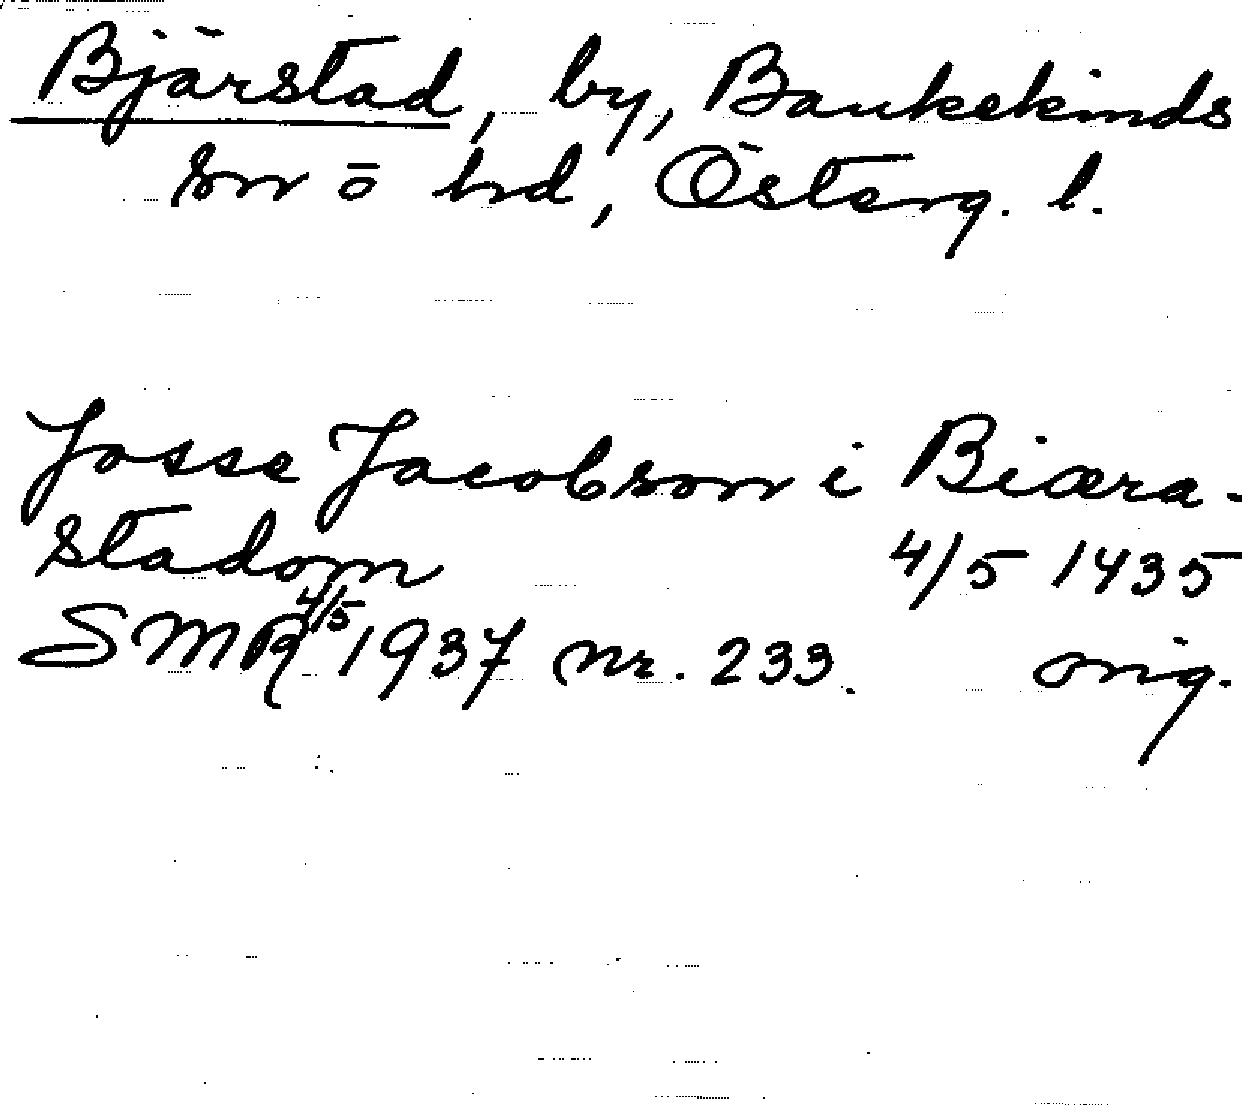 Bjärstad, by, Bankekinds
sn o hd, Österg. l.
Josse Jacobson i Biæra-
stadom 4/5 1435
SMR 4/5 1937 nr. 233. orig.